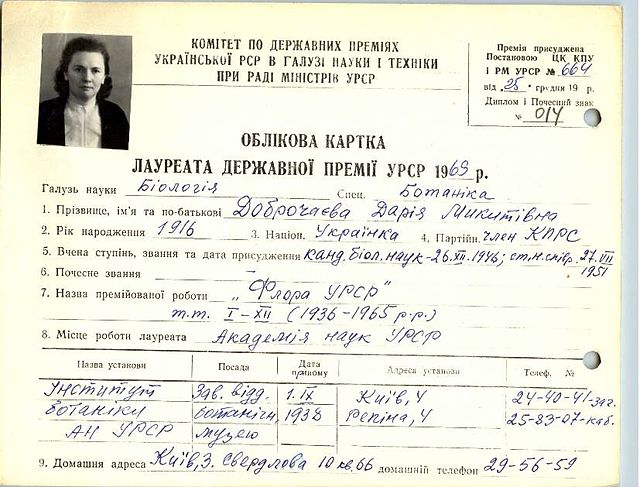 КОМІТЕТ ПО ДЕРЖАВНИХ ПРЕМІЯХ
УКРАЇНСЬКОЇ РСР В ГАЛУЗІ НАУКИ І ТЕХНІКИ
ПРИ РАДІ МІНІСТРІВ УРСР
Премія присуджена
Постановою ЦК КПУ
і РМ УРСР № 664
від „25" грудня 19 р.
Диплом і Почесний знак
№ 014
ОБЛІКОВА КАРТКА
ЛАУРЕАТА ДЕРЖАВНОЇ ПРЕМІЇ УРСР 1969 р.
Галузь науки Біологія Спец. Ботаніка
1. Прізвище, ім'я та по-батькові Доброчаєва Дарія Микитівна
2. Рік народження 1916 3. Націон. Українка 4. Партійн. член КПРС
5. Вчена ступінь, звання та дата присудження канд. біол. наук - 26.XII.1946; ст. н. співр. 27.VII 1951
6. Почесне звання —
7. Назва премійованої роботи „Флора УРСР"
т.т. I-XII (1936-1965 р.р.)
8. Місце роботи лауреата Академія наук УРСР
Назва установи Посада Дата прийому Адреса установи Телеф. №
Інститут Зав. відд. 1.IX Київ, 4 24-40-41-заг.
ботаніки ботаніч. 1938 Рєпіна, 4 25-83-07-каб.
АН УРСР музею
9. Домашня адреса Київ, 3. Свердлова 10 кв. 66 домашній телефон 29-56-59